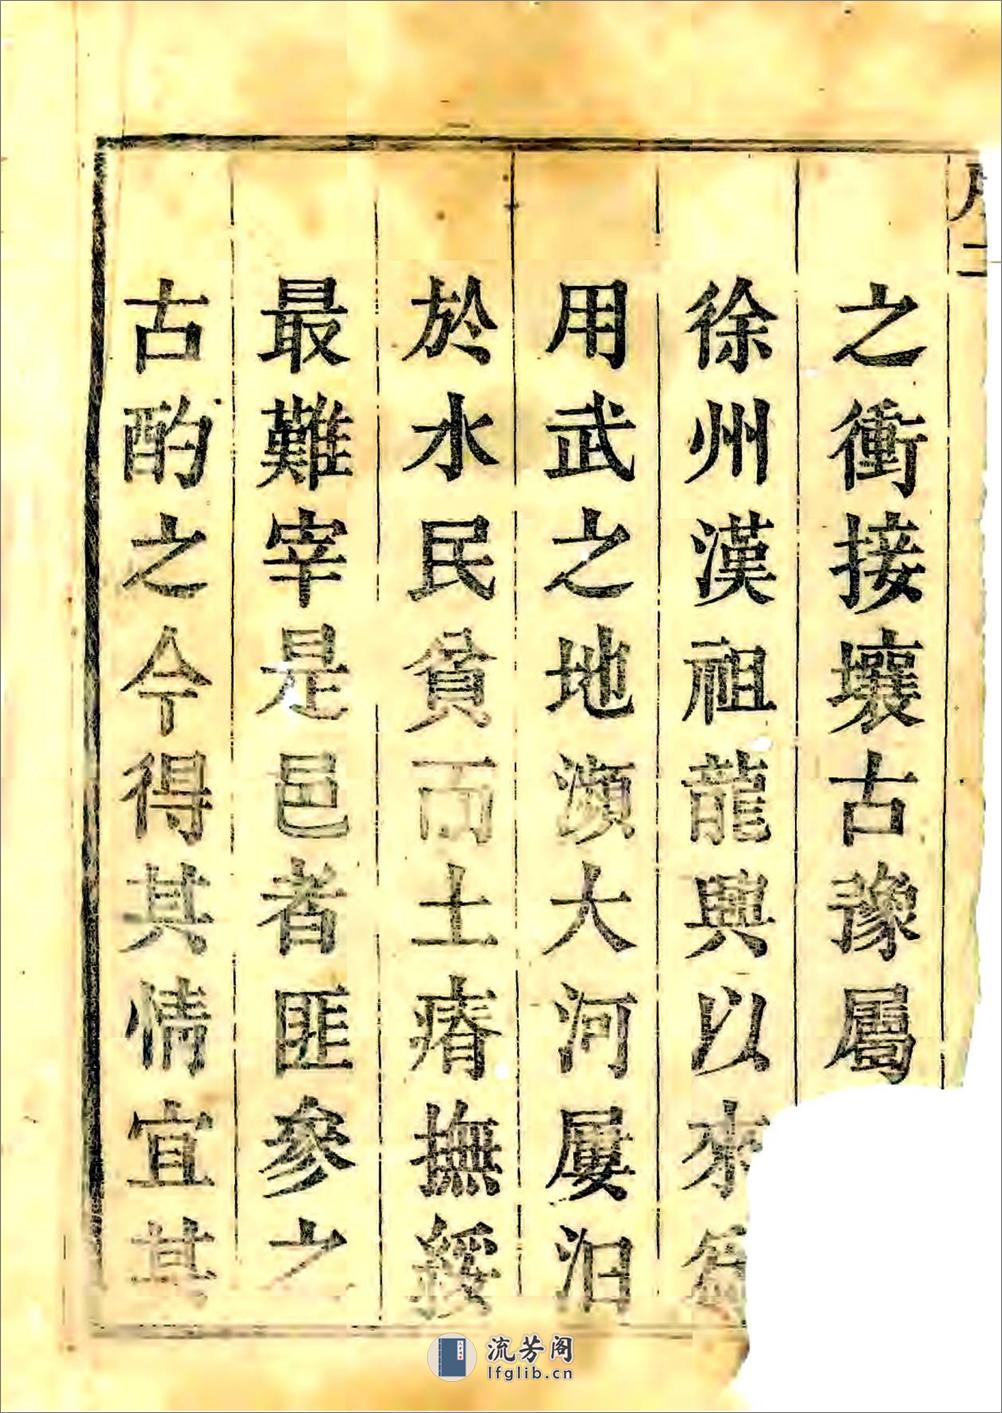 之衝接壤古豫屬
徐州漢祖龍興以來
用武之地瀕大河屢汨
於水民貧而土瘠撫綏
最難宰是邑者匪參之
古酌之今得其情宜其
流芳阁
lfglib.cn